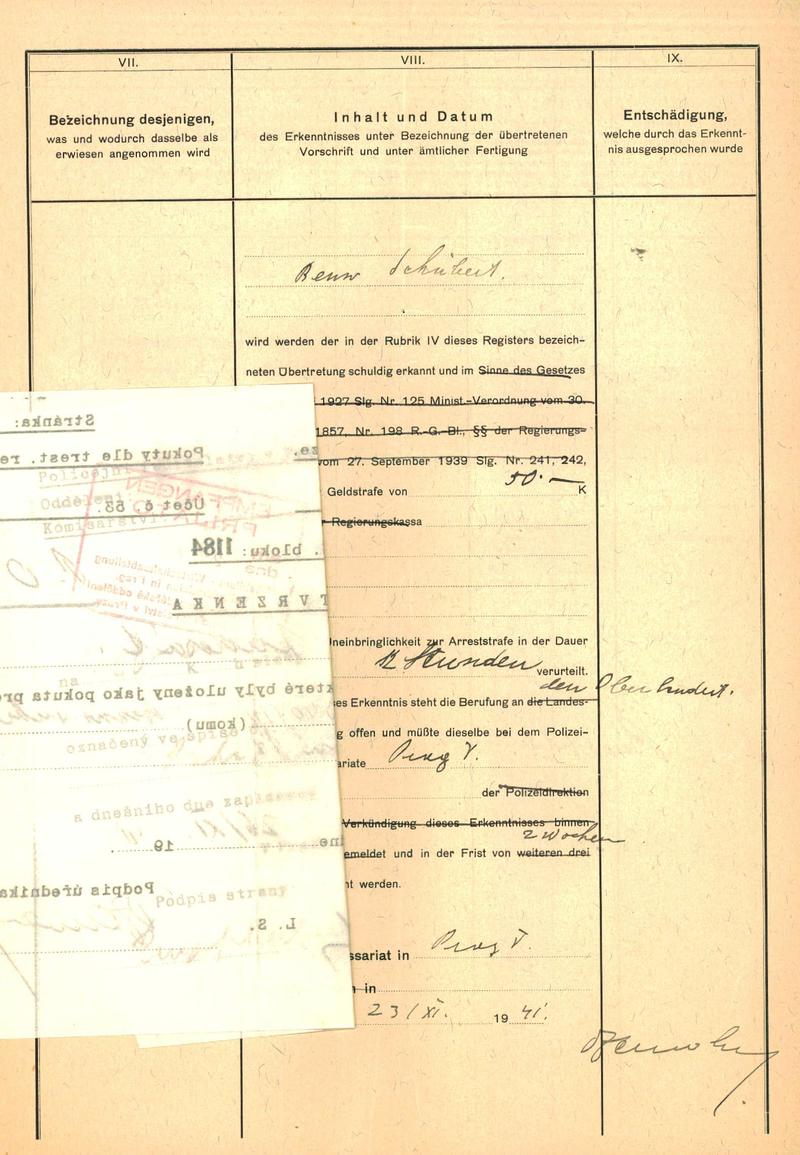 VII.
VIII.
IX.
Bezeichnung desjenigen,
was und wodurch dasselbe als
erwiesen angenommen wird
Inhalt und Datum
des Erkenntnisses unter Bezeichnung der übertretenen
Vorschrift und unter ämtlicher Fertigung
Entschädigung,
welche durch das Erkennt-
nis ausgesprochen wurde
Schubert.
wird werden der in der Rubrik IV dieses Registers bezeich-
neten Übertretung schuldig erkannt und im Sinne des Gesetzes
1927 Slg. Nr. 125 Minist.-Verordnung vom 30.
1857, Nr. 198 R.-G.-Bl., §§ der Regierungs-
vom 27. September 1939 Slg. Nr. 241, 242,
Geldstrafe von 50.— K
Regierungskassa
neinbringlichkeit zur Arreststrafe in der Dauer
12 Stunden verurteilt.
den
es Erkenntnis steht die Berufung an die Landes-
g offen und müßte dieselbe bei dem Polizei-
ariate Prag V.
der Polizeidirektion
Verkündigung dieses Erkenntnisses binnen
2 Wochen
emeldet und in der Frist von weiteren drei
ht werden.
ssariat in Prag V.
in
23/XI. 1941.
Stránka:
Pokuty dle trest. re
Účet č. 53.
bloku: 1184
TVRZENKA
které byly uloženy jako pokuta pr
(komu)
19
Podpis úředníka
L. S.
Oddělení
Komisařství
označený ve spise
a dnešního dne zaplaceno
Podpis strany